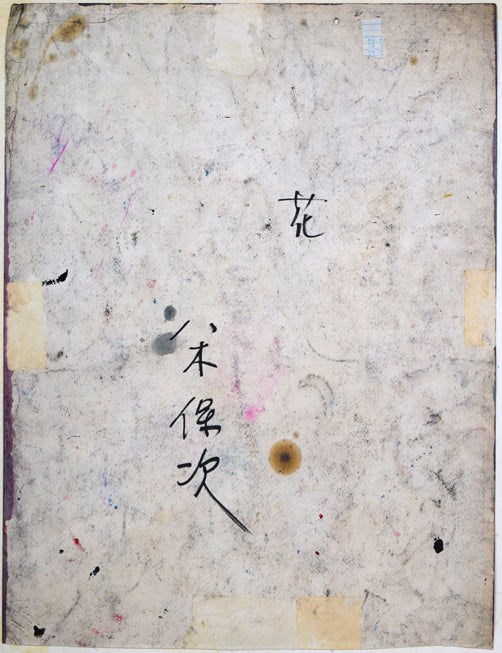 花
八木保次